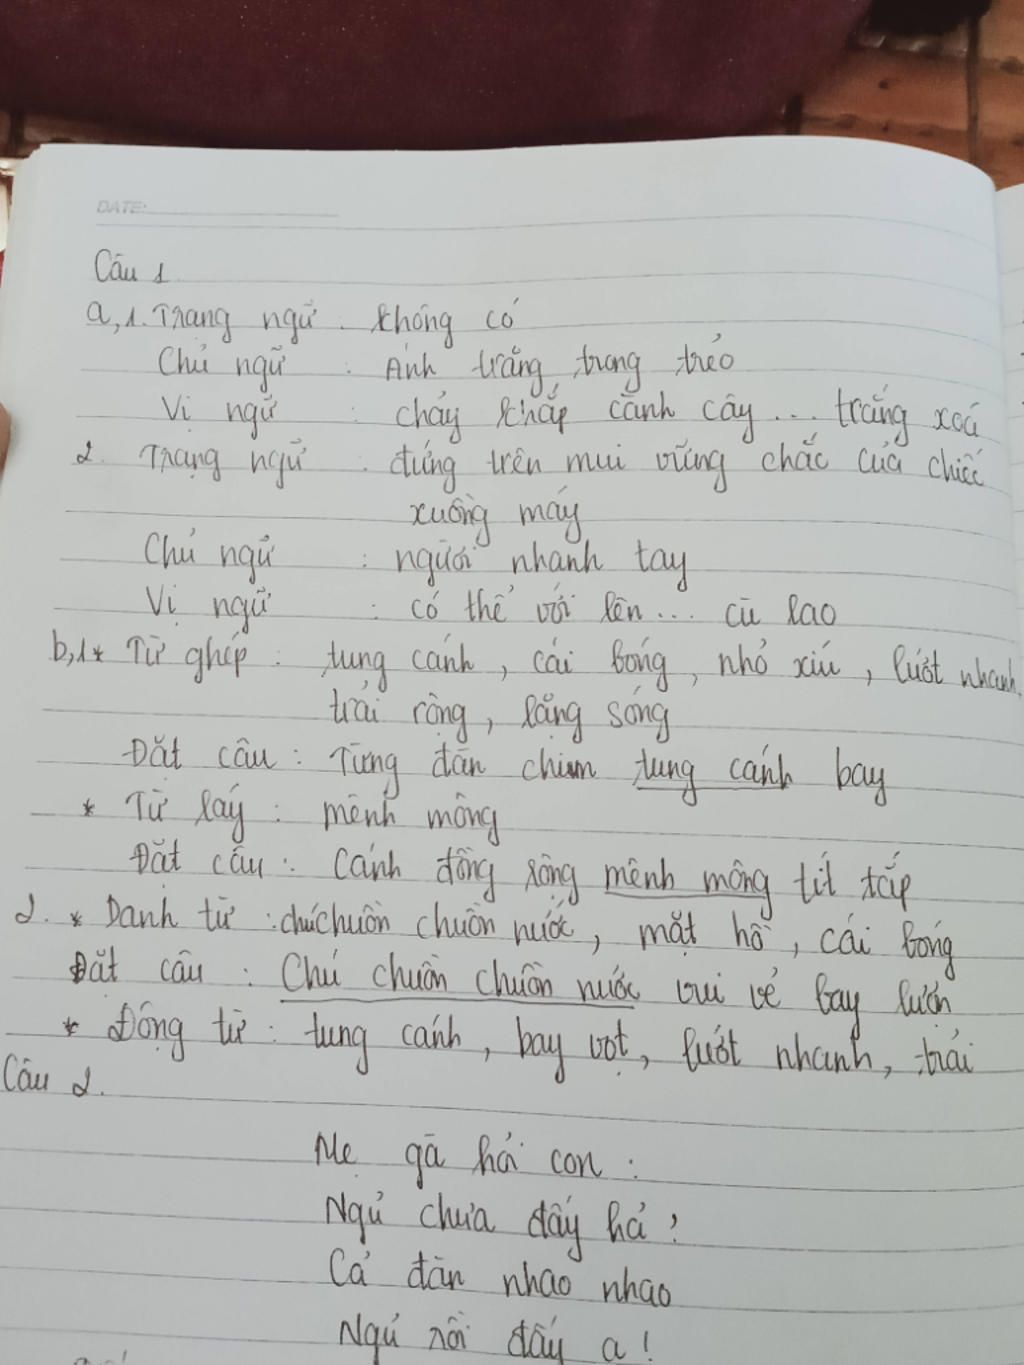 DATE:
Câu 1
a, 1. Trạng ngữ : không có
Chủ ngữ : Ánh trăng trong trẻo
Vị ngữ : chảy khắp cành cây ... trắng xoá
2. Trạng ngữ : đứng trên mui vững chắc của chiếc
xuồng máy
Chủ ngữ : người nhanh tay
Vị ngữ : có thể với lên ... cù lao
b, 1* Từ ghép : tung cánh, cái bóng, nhỏ xíu, lướt nhanh,
trải rộng, lặng sóng
Đặt câu : Từng đàn chim tung cánh bay
* Từ láy : mênh mông
Đặt câu : Cánh đồng rộng mênh mông tít tắp
2. * Danh từ : chú chuồn chuồn nước, mặt hồ, cái bóng
Đặt câu : Chú chuồn chuồn nước vui vẻ bay lượn
* Động từ : tung cánh, bay vọt, lướt nhanh, trải
Câu 2.
Mẹ gà hỏi con :
Ngủ chưa đấy hả ?
Cả đàn nhao nhao
Ngủ rồi đấy ạ !